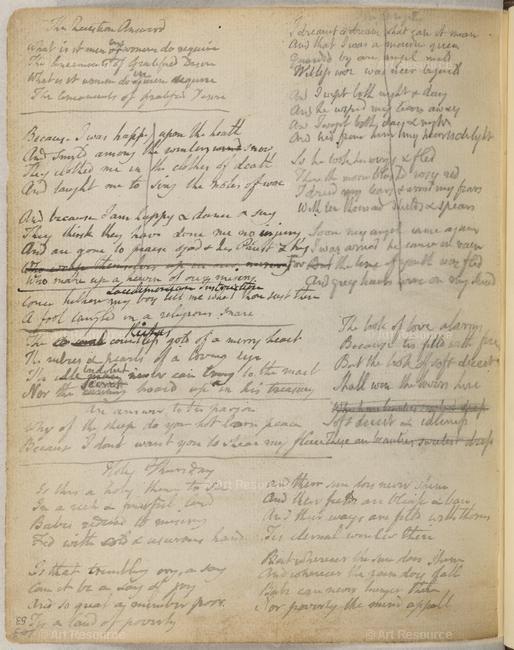 The Question Answerd
What is it men in women do require
The lineaments of Gratified Desire
What is it women do in men require
The lineaments of Gratified Desire
Because I was happy upon the heath
And smild among the winters snow
They clothed me in the clothes of death
And taught me to sing the notes of woe
And because I am happy & dance & sing
They think they have done me no injury
And are gone to praise God & his Priest & King
Who make up a heaven of our misery
Lacedemonian Instruction
Come hither my boy tell me what thou seest there
A fool tangled in a religious snare
Riches
The countless gold of a merry heart
The rubies & pearls of a loving eye
The indolent never can bring to the mart
Nor the secret hoard up in his treasury
An answer to the parson
Why of the sheep do you not learn peace
Because I dont want you to shear my fleece
Holy Thursday
Is this a holy thing to see
In a rich & fruitful land
Babes reducd to misery
Fed with cold & usurous hand
Is that trembling cry a song
Can it be a song of joy
And so great a number poor
Tis a land of poverty
53
I dreamt a dream what can it mean
And that I was a maiden queen
Guarded by an angel mild
Witless woe was neer beguild
And I wept both night & day
And he wiped my tears away
And I wept both day & night
And hid from him my hearts delight
So he took his wings & fled
Then the morn blushd rosy red
I dried my tears & armd my fears
With ten thousand shields & spears
Soon my angel came again
I was armd he came in vain
For the time of youth was fled
And grey hairs were on my head
The look of love alarms
Because tis filld with fire
But the look of soft deceit
Shall win the lovers hire
Soft deceit & idleness
These are beautys sweetest dress
And their sun does never shine
And their fields are bleak & bare
And their ways are filld with thorns
Tis eternal winter there
But whereeer the sun does shine
And whereeer the rain does fall
Babe can never hunger there
Nor poverty the mind appall
© Art Resource
© Art Resource
© Art Resource